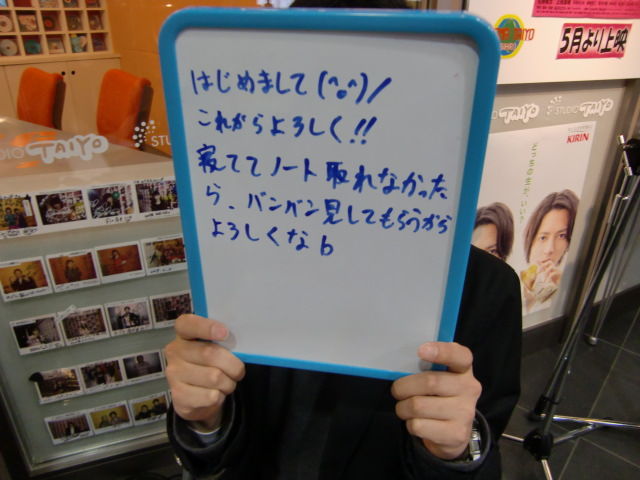 はじめまして(^o^)/
これからよろしく!!
寝ててノート取れなかった
ら、バンバン見してもらうから
よろしくなb
5月より上映
STUDIO TAIYO
KIRIN
どっちの生が、いい?
DIO TAIYO
STU